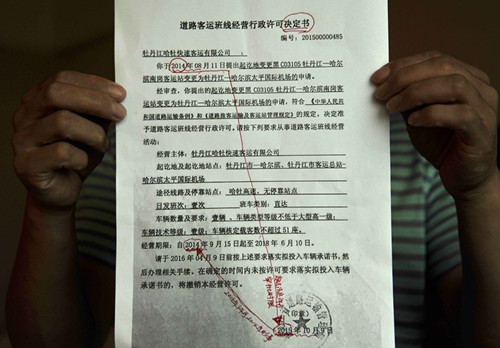 道路客运班线经营行政许可决定书
编号:201500000485
牡丹江哈牡快速客运有限公司 :
你于 2014年 08月 11日提出起讫地变更黑 C03105 牡丹江—哈尔
滨南岗客运站变更为牡丹江—哈尔滨太平国际机场的申请。
经审查,你提出的起讫地变更黑 C03105 牡丹江—哈尔滨南岗客
运站变更为牡丹江—哈尔滨太平国际机场的申请,符合《中华人民共
和国道路运输条例》和《道路旅客运输及客运站管理规定》的规定,决定准
予道路客运班线经营行政许可。请按下列要求从事道路客运班线经营
活动:
经营主体:牡丹江哈牡快速客运有限公司
起讫地及起讫地站点:牡丹江市—哈尔滨、牡丹江市客运总站-
哈尔滨太平国际机场
途径线路及停靠站点: 哈牡高速,无停靠站点
日发班次:壹次 班车类别:直达
车辆数量及要求:壹辆 、车辆类型等级不低于大型高一级;
车辆技术等级:壹级;车辆核定载客数不超过 51 座。
经营期限:自 2014 年 9 月 15 日起至 2018 年 6 月 10 日。
请于 2016 年 04 月 9 日前按上述要求落实拟投入车辆承诺书,然
后办理相关手续。在确定的时间内未按许可要求落实拟投入车辆
承诺书的,将撤销本经营许可。
(印章)
2015 年 10 月 9 日